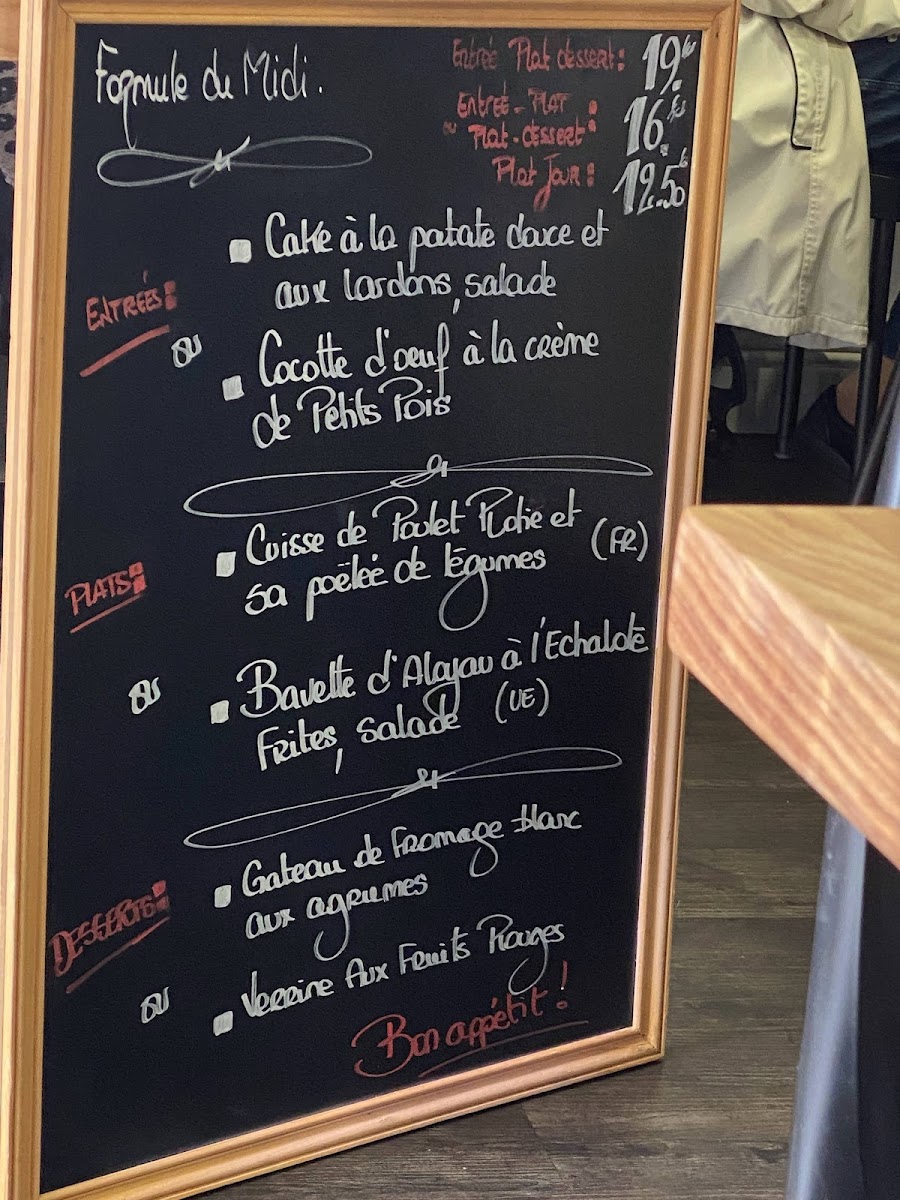 Formule du Midi.
Entrée Plat dessert: 19.€
Entrée-PLAT :
ou Plat-dessert: 16.€
Plat Jour: 12.50€
ENTRÉES:
Cake à la patate douce et
aux lardons, salade
ou
Cocotte d'oeuf à la crème
de Petits Pois
PLATS:
Cuisse de Poulet Rotie et
sa poëlée de légumes (FR)
ou
Bavette d'Aloyau à l'Echalote
Frites, salade (UE)
DESSERTS:
Gateau de fromage blanc
aux agrumes
ou
Verrine Aux Fruits Rouges
Bon appétit !